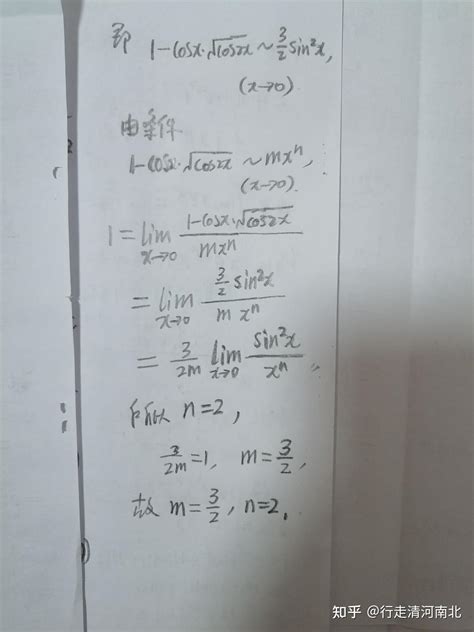 即 1-cosx·√cos2x ~ 3/2 sin²x,
(x→0)
由条件
1-cosx·√cos2x ~ mxⁿ,
(x→0).
1 = lim x→0 (1-cosx·√cos2x)/(mxⁿ)
= lim x→0 (3/2 sin²x)/(m xⁿ)
= 3/(2m) lim x→0 sin²x/xⁿ,
所以 n=2,
3/(2m)=1, m=3/2,
故 m=3/2, n=2.
知乎 @行走清河南北